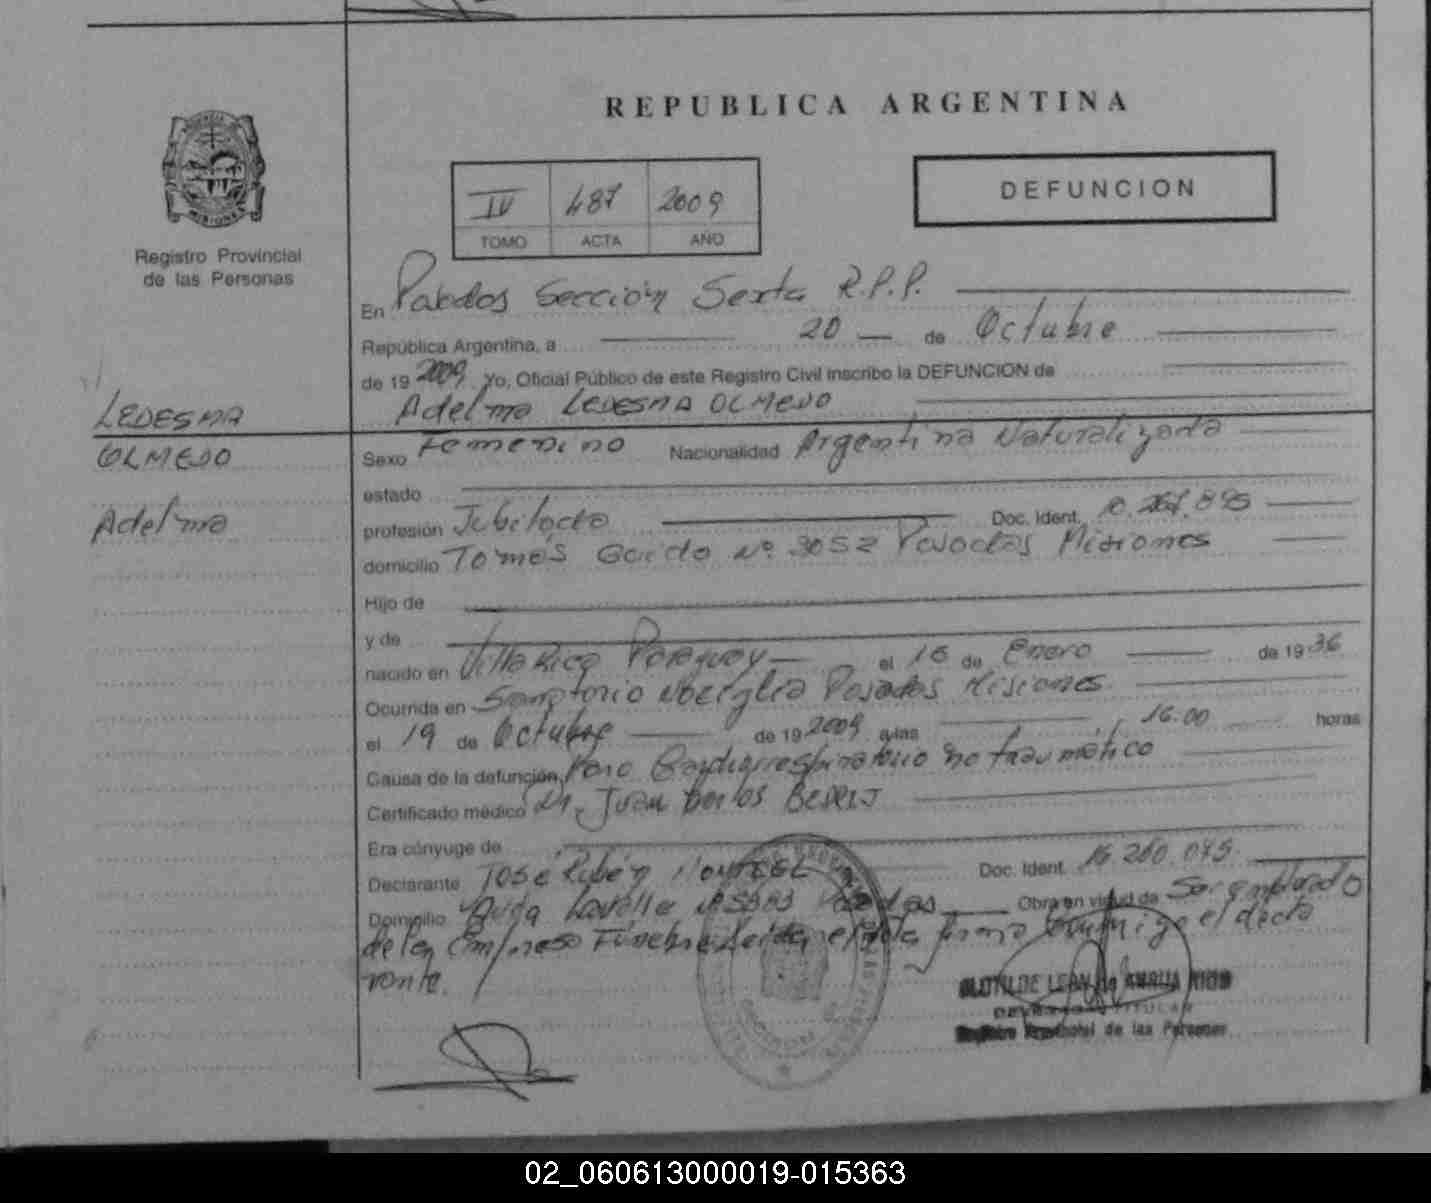 REPUBLICA ARGENTINA
IV 487 2009
TOMO ACTA AÑO
DEFUNCION
MISIONES
Registro Provincial
de las Personas
En Posadas Sección Sexta R.P.P.
República Argentina, a 20 de Octubre
de 19 2009. Yo, Oficial Público de este Registro Civil inscribo la DEFUNCION de
Adelma LEDESMA OLMEDO
LEDESMA
OLMEDO
Adelma
Sexo Femenino Nacionalidad Argentina Naturalizada
estado
profesión Jubilada Doc. Ident. 895
domicilio Tomás Guido Nº 3052 Posadas Misiones
Hijo de
y de
nacido en Villa Rica Paraguay el 16 de Enero de 19 36
Ocurrida en Sanatorio Nosiglia Posadas Misiones
el 19 de Octubre de 19 2009 a las 16.00 horas
Causa de la defunción Paro Cardiorrespiratorio no traumático
Certificado médico Dr. Juan Carlos
Era cónyuge de
Declarante José Rubén Doc. Ident. 16.260.075
Domicilio Avda Lavalle Nº Posadas Obra en virtud de Ser empleado
de la Empresa Fúnebre firma conmigo el decla
rante.
CLOTILDE
TITULAR
Registro Provincial de las Personas
02_060613000019-015363